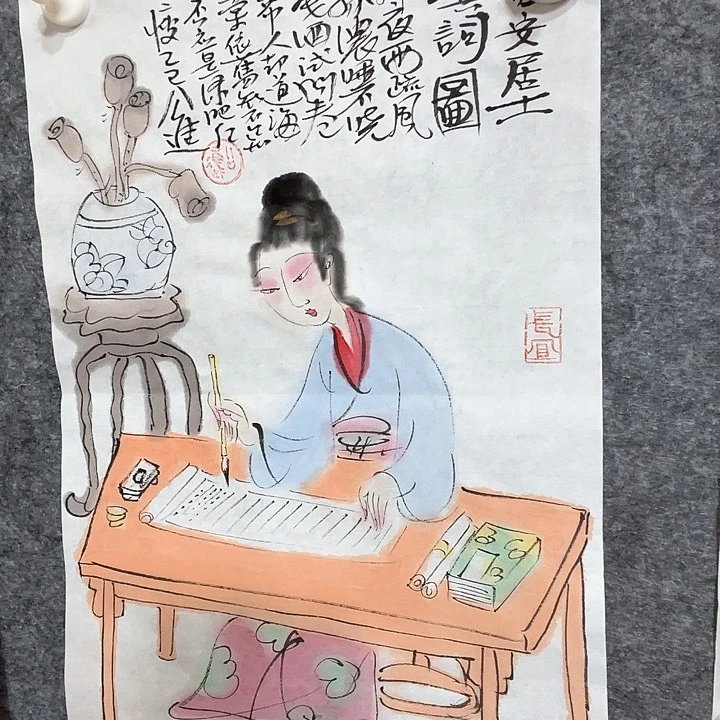 安居士
詞圖
夜雨疏風
濃睡不
試問卷
人却道海
棠依舊知否知
否應是綠肥紅
瘦乙巳公進
長宜